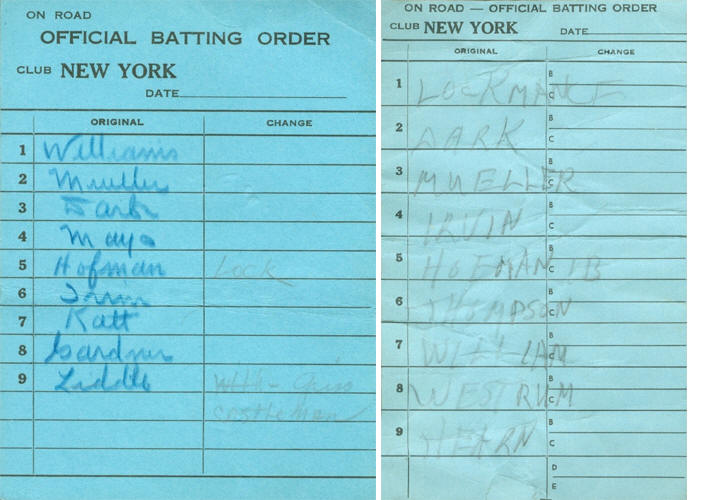 ON ROAD
OFFICIAL BATTING ORDER
CLUB NEW YORK
DATE
ORIGINAL CHANGE
1 Williams
2 Mueller
3 Dark
4 Mays
5 Hofman Lock
6 Irvin
7 Katt
8 Gardner
9 Liddle
castleman
ON ROAD — OFFICIAL BATTING ORDER
CLUB NEW YORK DATE
ORIGINAL CHANGE
1 LOCKMAN B
C
2 DARK B
C
3 MUELLER B
C
4 IRVIN B
C
5 HOFMAN 1B B
C
6 THOMPSON B
C
7 WILLIAM B
C
8 WESTRUM B
C
9 HEARN B
C
D
E